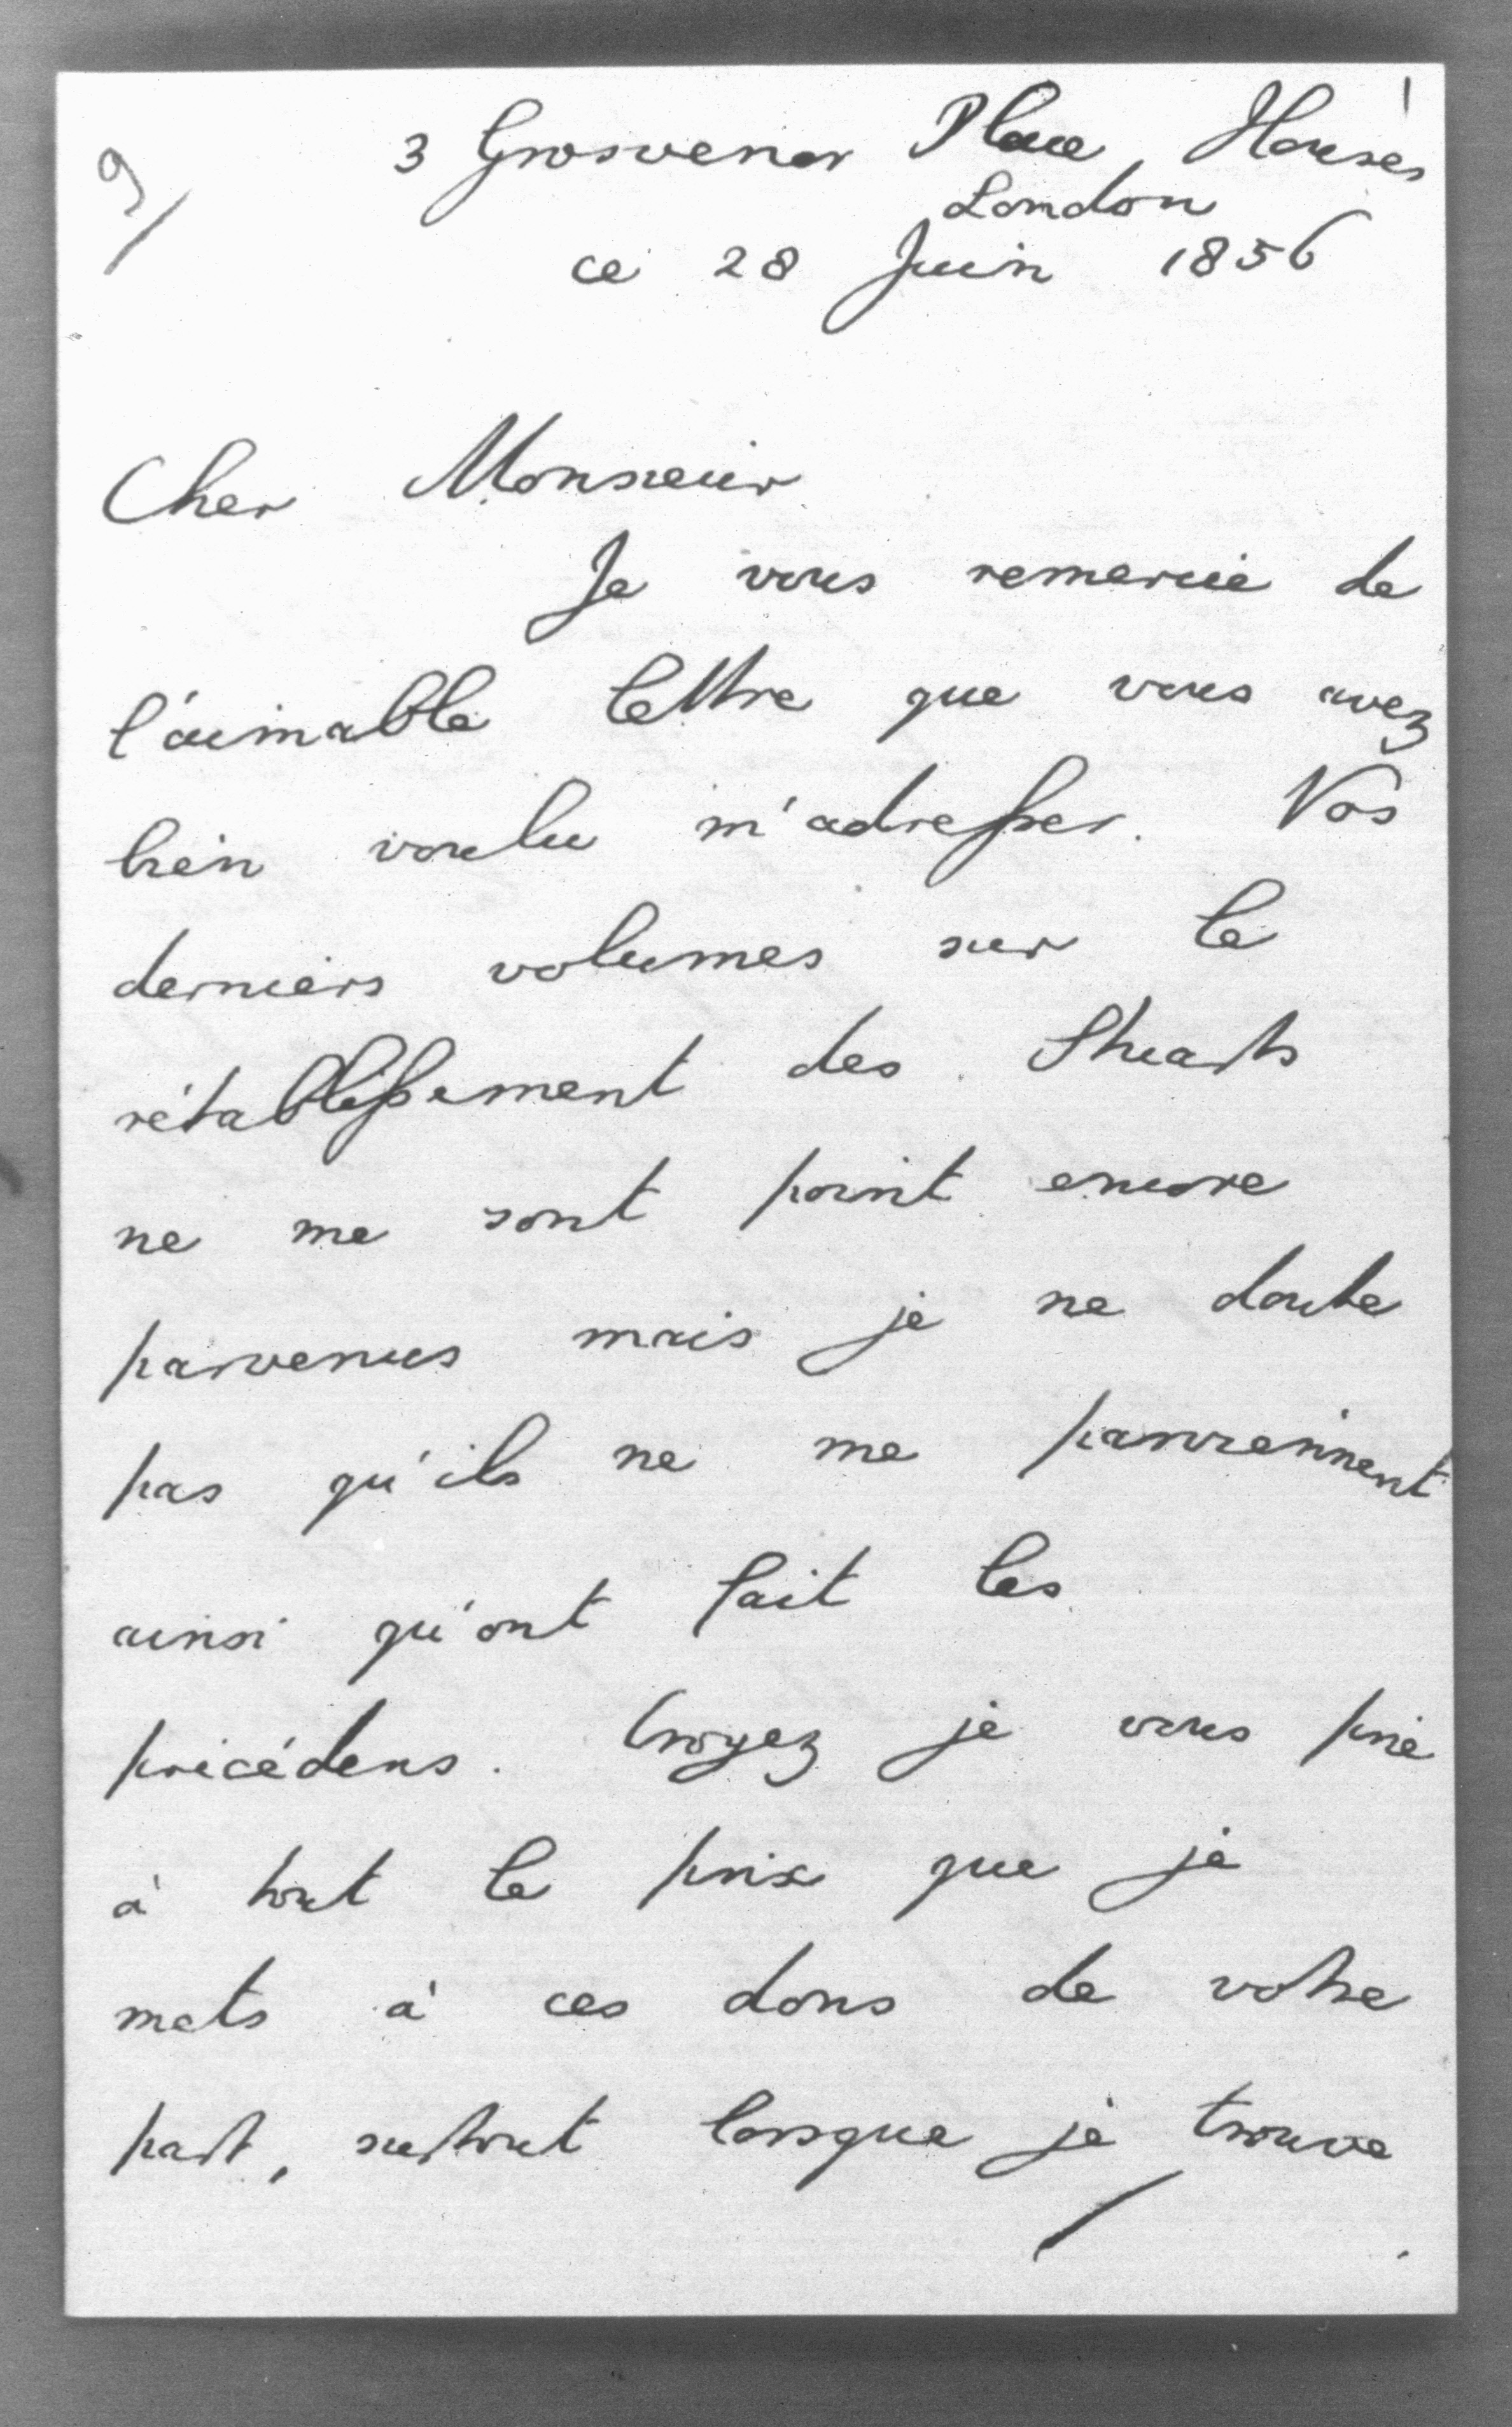 9/
3 Grosvenor Place, Houses
London
ce 28 Juin 1856
Cher Monsieur
Je vous remercie de
l'aimable lettre que vous avez
bien voulu m'adresser. Vos
derniers volumes sur le
rétablissement des Stuarts
ne me sont point encore
parvenus mais je ne doute
pas qu'ils ne me parviennent
ainsi qu'ont fait les
précédens. Croyez je vous prie
à tout le prix que je
mets à ces dons de votre
part, surtout lorsque je trouve